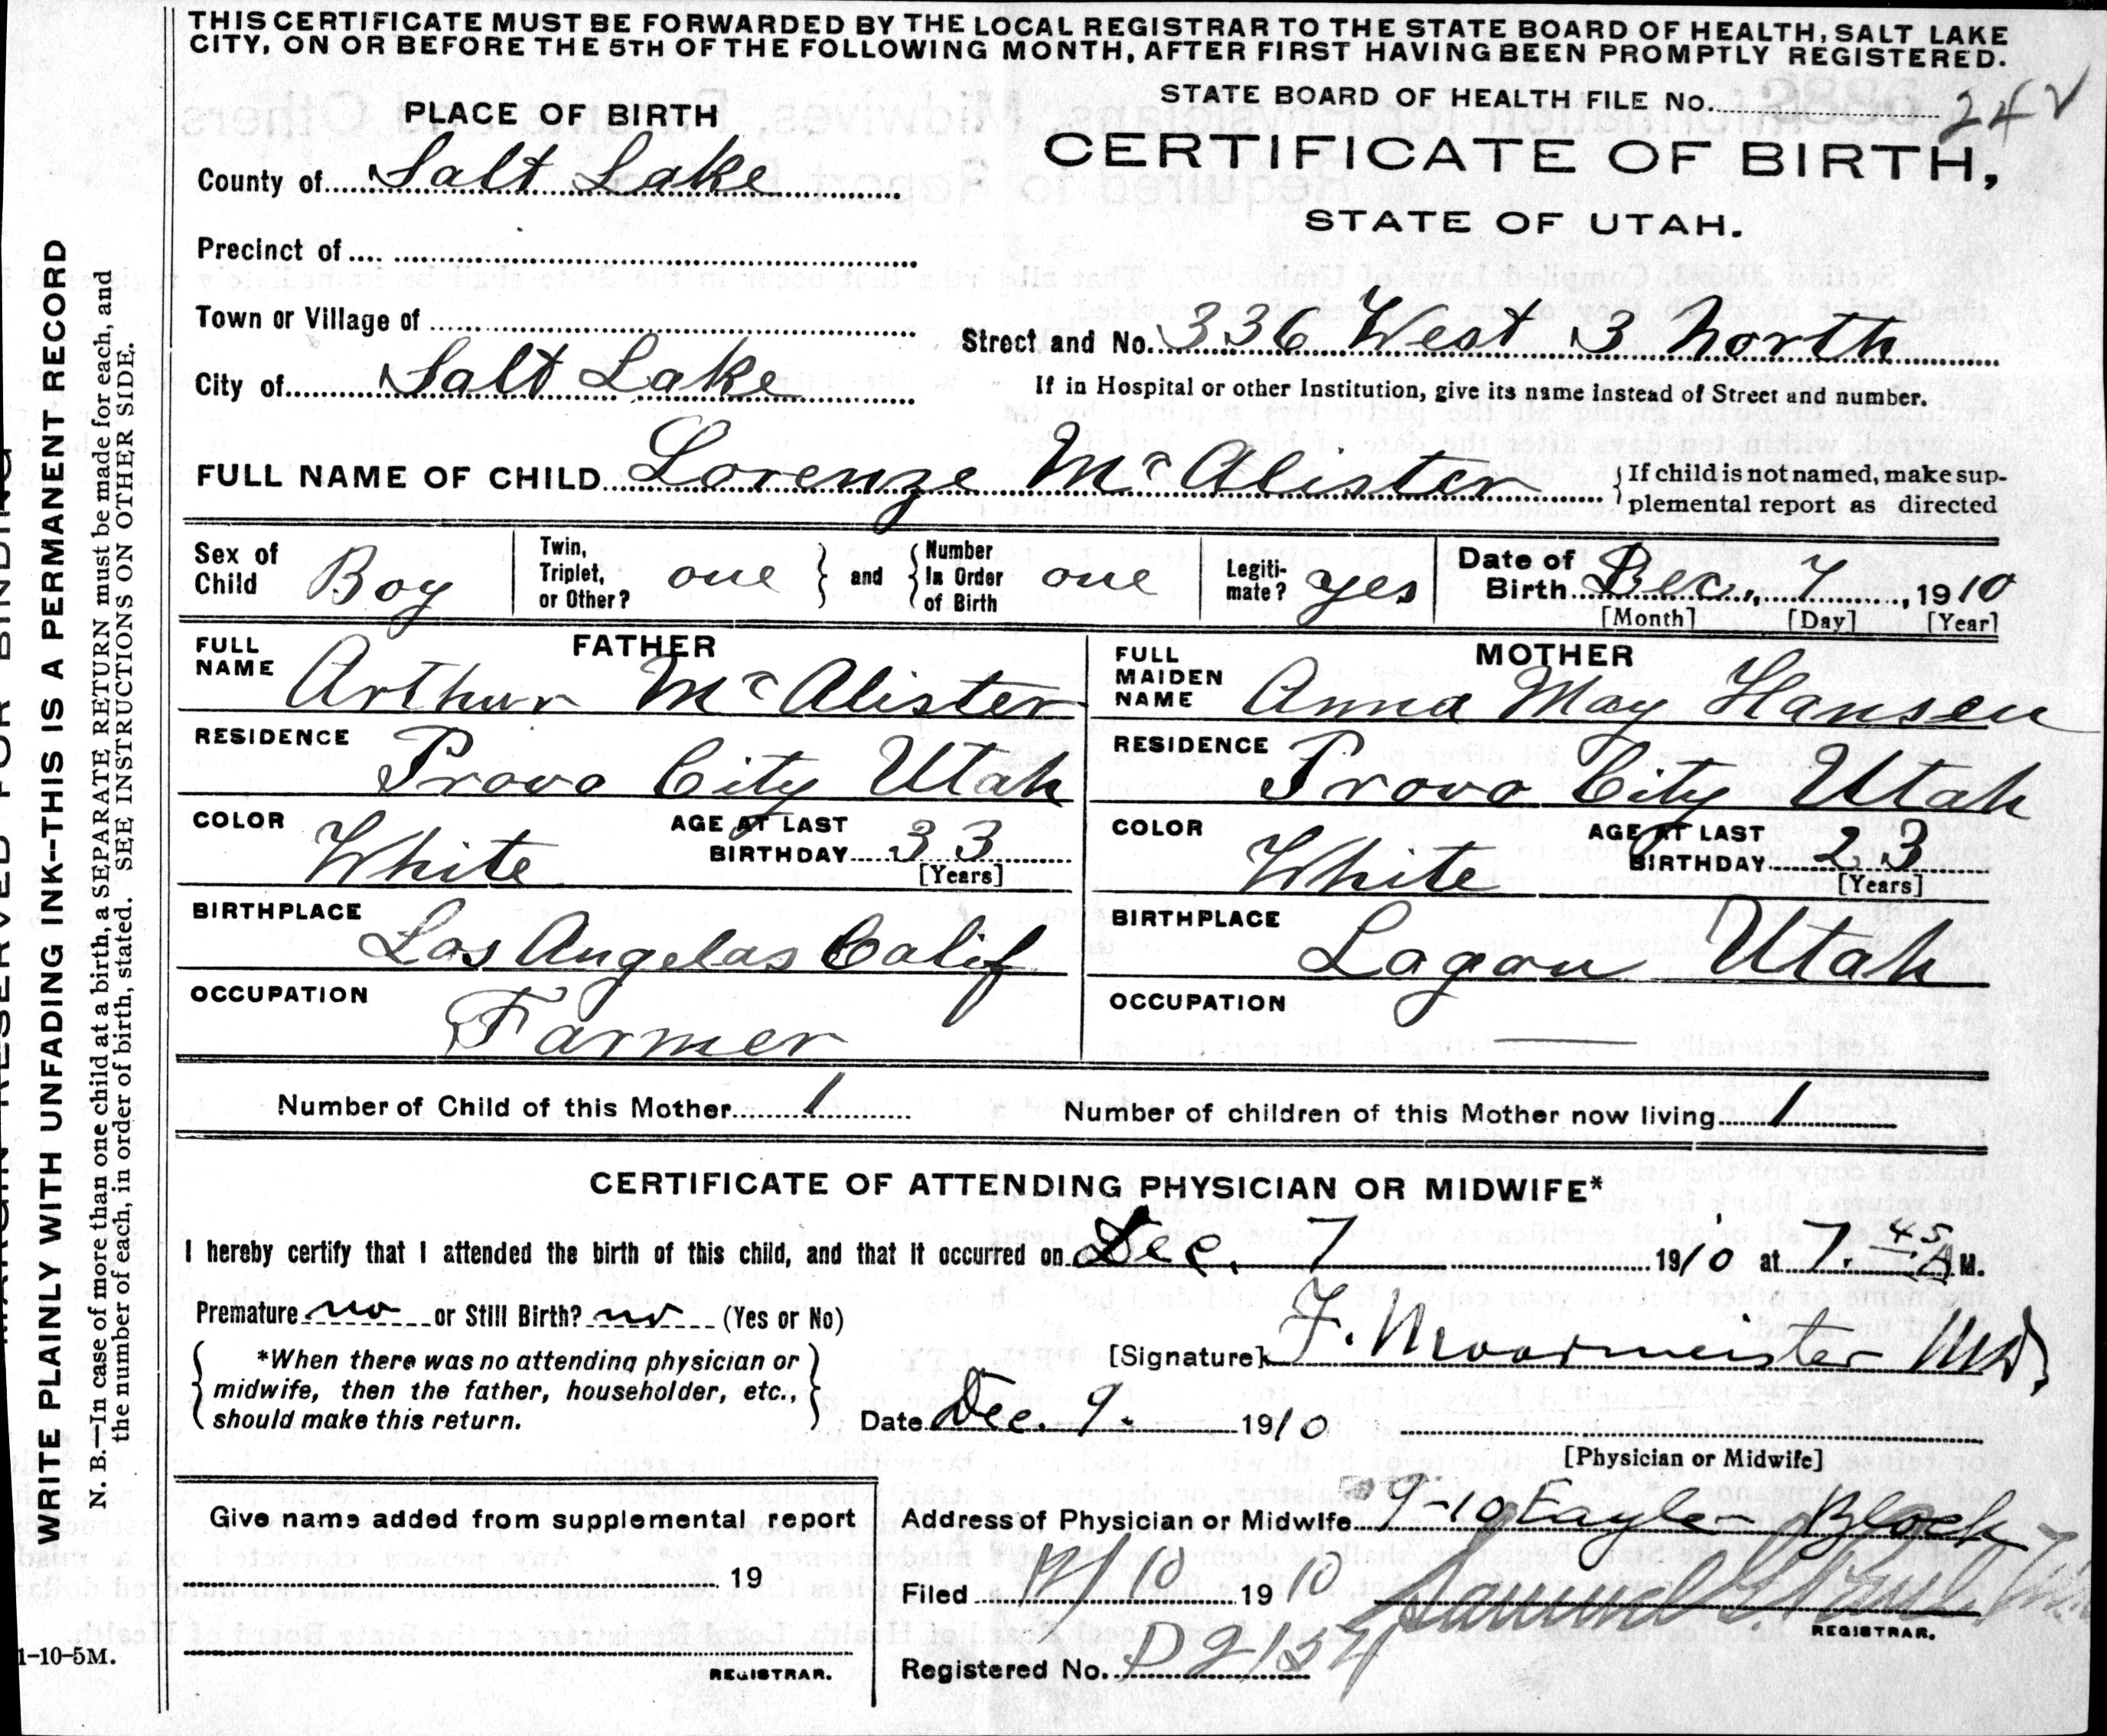 THIS CERTIFICATE MUST BE FORWARDED BY THE LOCAL REGISTRAR TO THE STATE BOARD OF HEALTH, SALT LAKE
CITY, ON OR BEFORE THE 5TH OF THE FOLLOWING MONTH, AFTER FIRST HAVING BEEN PROMPTLY REGISTERED.
STATE BOARD OF HEALTH FILE No. 242
PLACE OF BIRTH
CERTIFICATE OF BIRTH,
STATE OF UTAH.
County of Salt Lake
Precinct of
Town or Village of
Street and No. 336 West 3 North
City of Salt Lake
If in Hospital or other Institution, give its name instead of Street and number.
FULL NAME OF CHILD Lorenze McAlister
If child is not named, make sup-
plemental report as directed
Sex of Child Boy
Twin, Triplet, or Other? one and Number In Order of Birth one
Legiti-mate? yes
Date of Birth Dec., 7, 1910
[Month] [Day] [Year]
FATHER
FULL NAME Arthur McAlister
RESIDENCE Provo City Utah
COLOR White AGE AT LAST BIRTHDAY 33
[Years]
BIRTHPLACE Los Angelas Calif
OCCUPATION Farmer
MOTHER
FULL MAIDEN NAME Anna May Hansen
RESIDENCE Provo City Utah
COLOR White AGE AT LAST BIRTHDAY 23
[Years]
BIRTHPLACE Logan Utah
OCCUPATION —
Number of Child of this Mother 1
Number of children of this Mother now living 1
CERTIFICATE OF ATTENDING PHYSICIAN OR MIDWIFE*
I hereby certify that I attended the birth of this child, and that it occurred on Dec. 7 1910 at 7.45 A M.
Premature no or Still Birth? no (Yes or No)
*When there was no attending physician or
midwife, then the father, householder, etc.,
should make this return.
[Signature] F. Moormeister MD.
Date Dec. 9. 1910
[Physician or Midwife]
Give name added from supplemental report
19
REGISTRAR.
Address of Physician or Midwife 9-10 Eagle Block
Filed 1910
REGISTRAR.
Registered No. D2134
WRITE PLAINLY WITH UNFADING INK--THIS IS A PERMANENT RECORD
N. B.—In case of more than one child at a birth, a SEPARATE RETURN must be made for each, and
the number of each, in order of birth, stated. SEE INSTRUCTIONS ON OTHER SIDE.
1-10-5M.